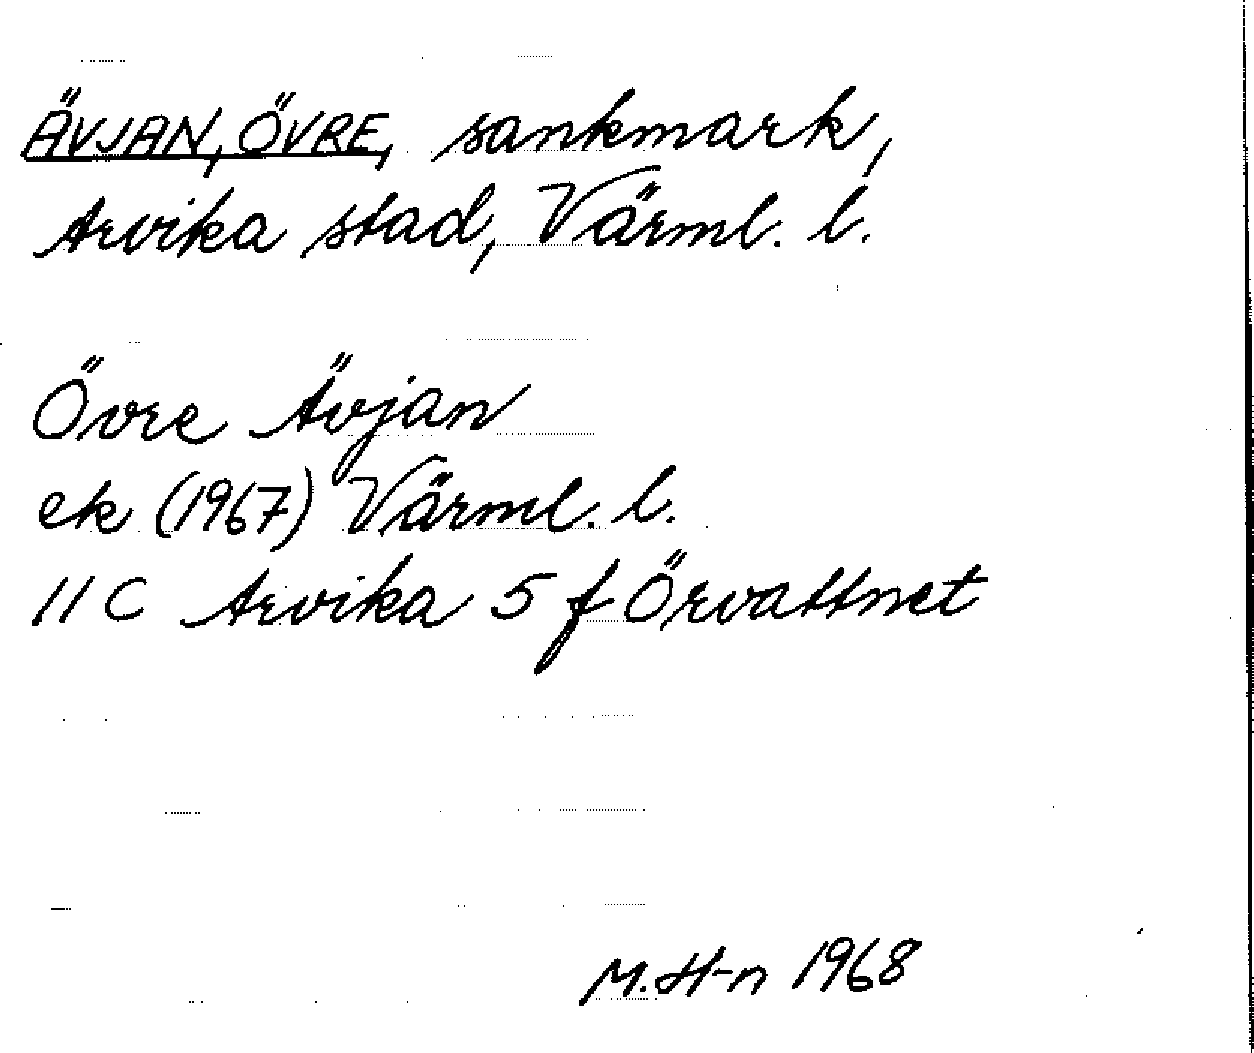 ÄVJAN, ÖVRE, sankmark,
Arvika stad, Värml. l.
Övre Ävjan
ek (1967) Värml. l.
11 C Arvika 5 f Örvattnet
M. H-n 1968